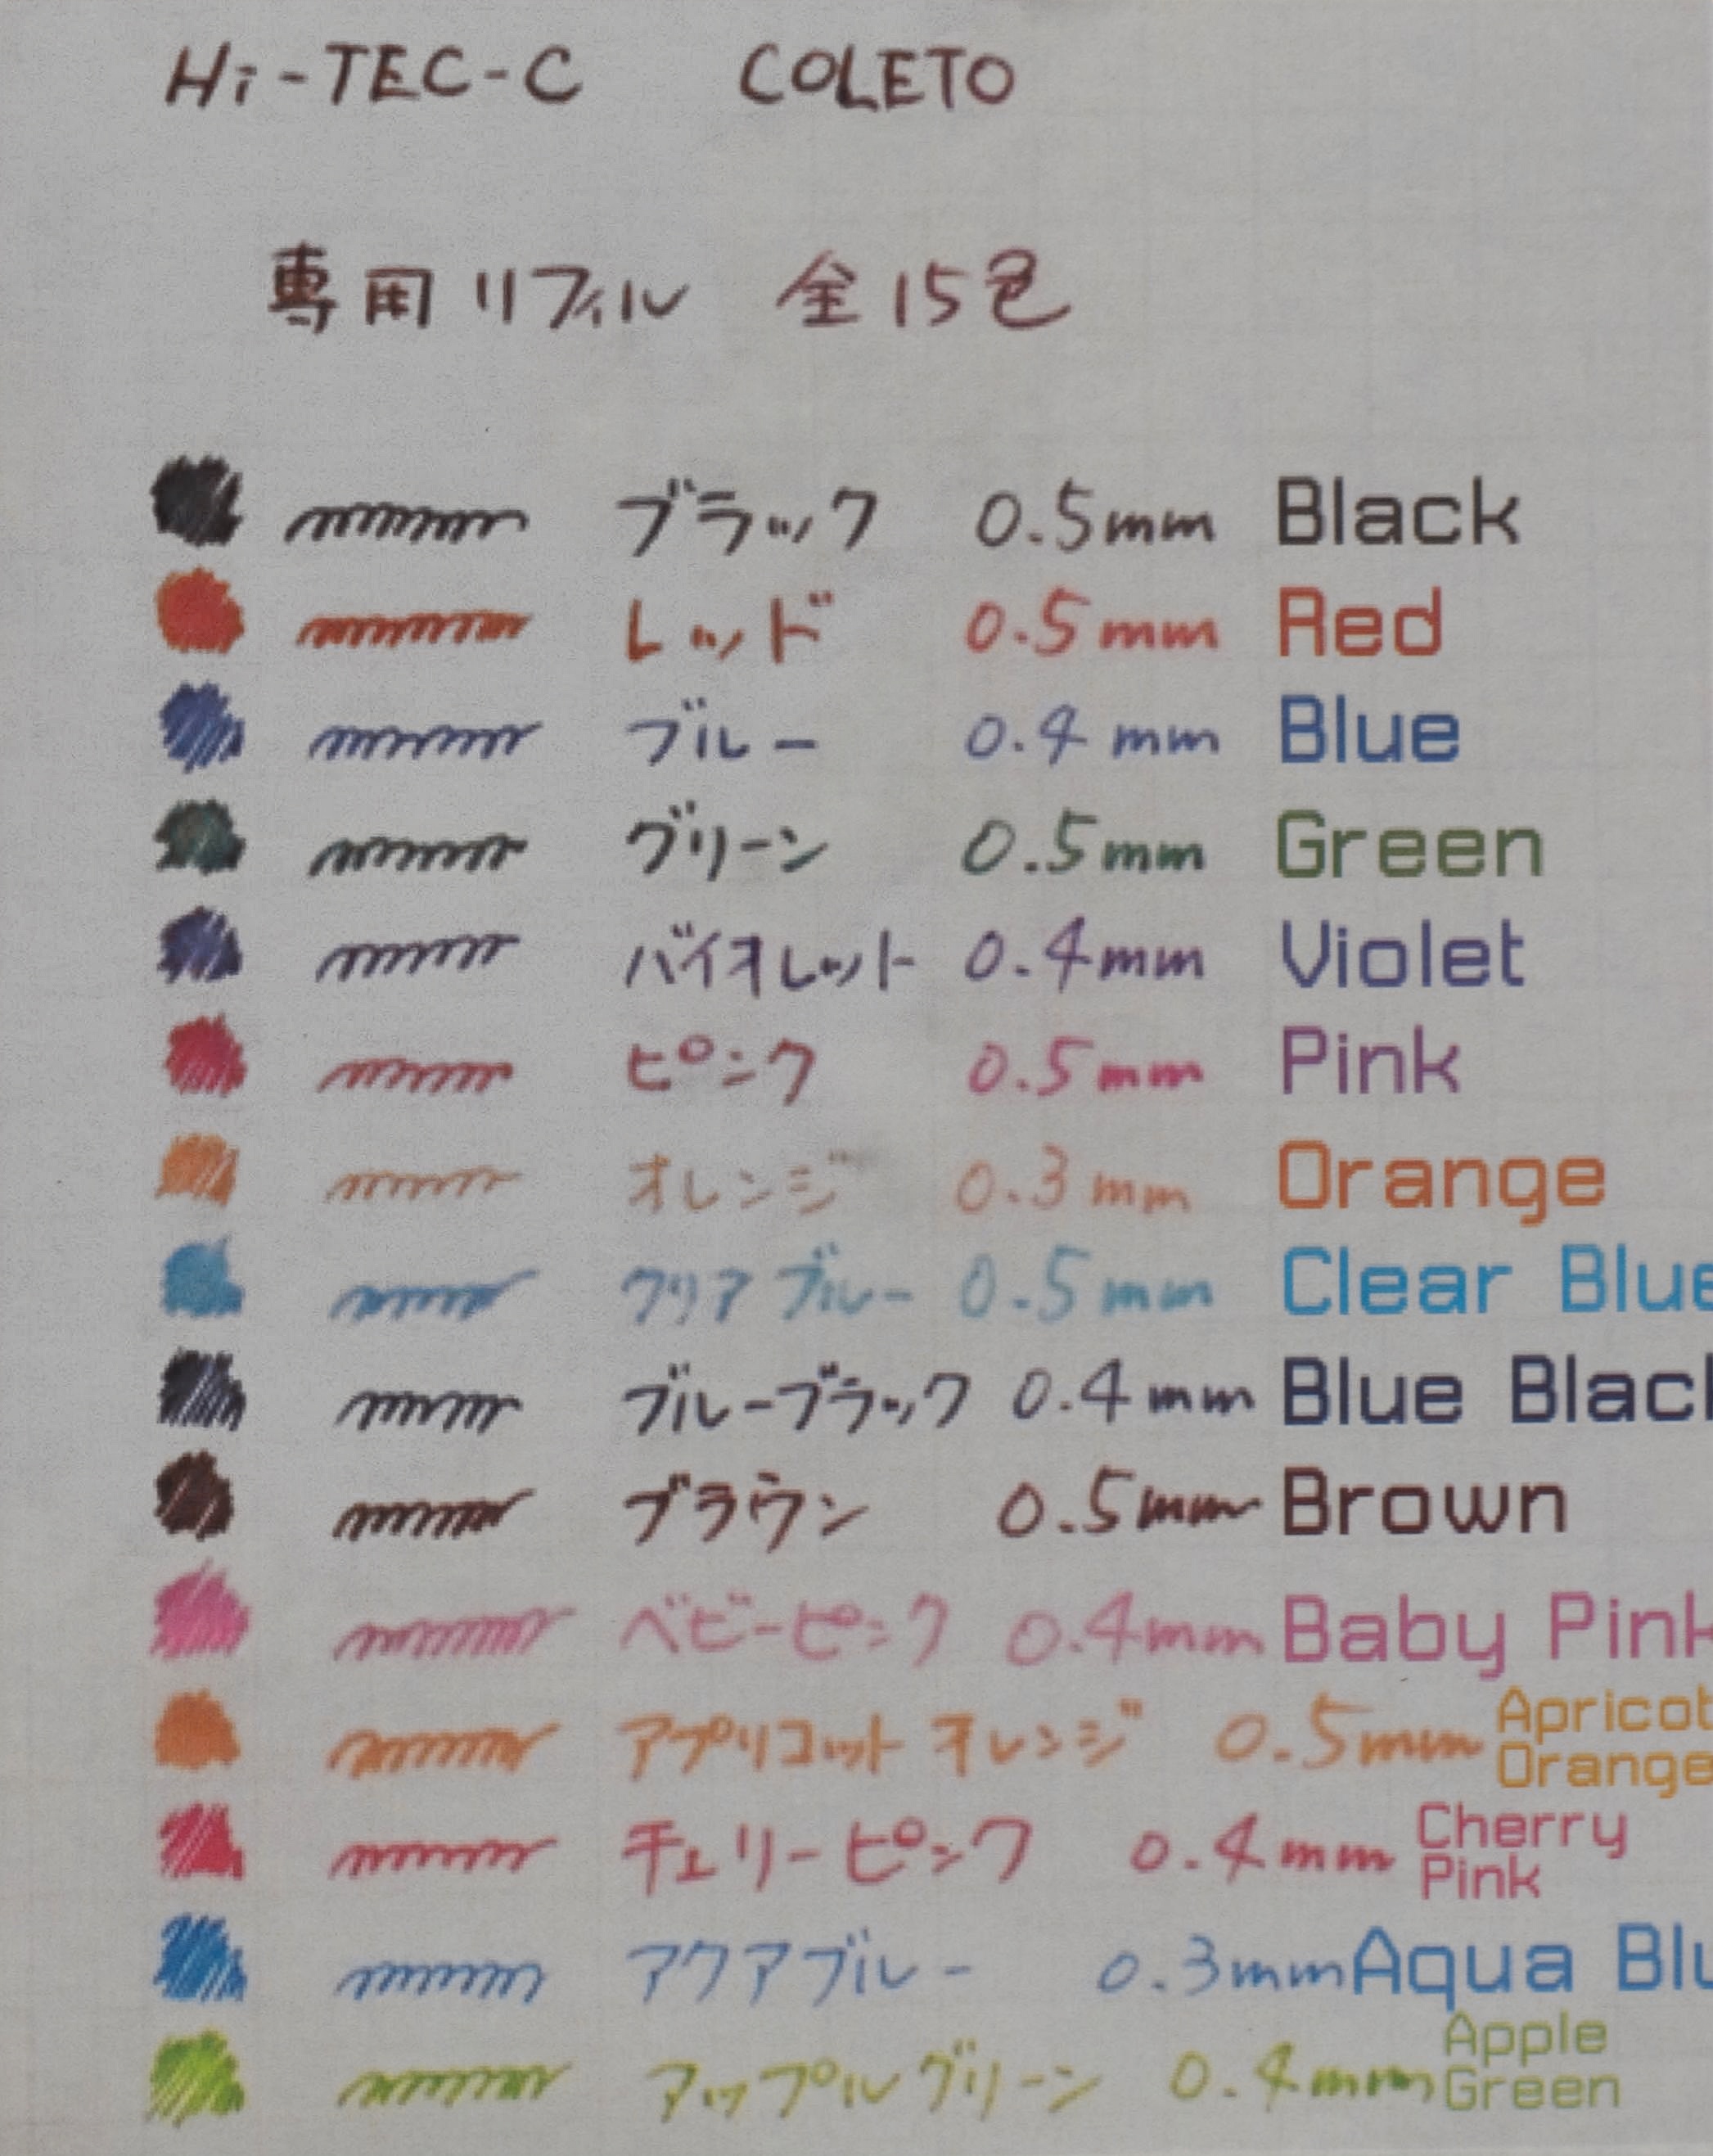 Hi-TEC-C COLETO
専用リフィル 全15色
ブラック 0.5mm Black
レッド 0.5mm Red
ブルー 0.4mm Blue
グリーン 0.5mm Green
バイオレット 0.4mm Violet
ピンク 0.5mm Pink
オレンジ 0.3mm Orange
クリアブルー 0.5mm Clear Blue
ブルーブラック 0.4mm Blue Black
ブラウン 0.5mm Brown
ベビーピンク 0.4mm Baby Pink
アプリコットオレンジ 0.5mm Apricot
Orange
チェリーピンク 0.4mm Cherry
Pink
アクアブルー 0.3mm Aqua Blu
アップルグリーン 0.4mm Apple
Green